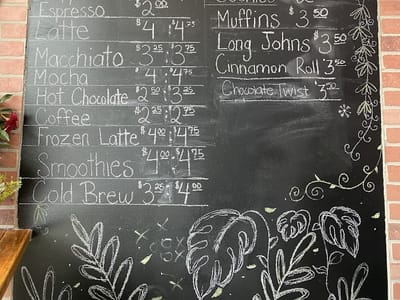 Espresso $2.00
Latte $4 : $4.75
Macchiato $3.25 : $3.75
Mocha $4 : $4.75
Hot Chocolate $2.50 : $3.25
Coffee $2.25 : $2.75
Frozen Latte $4.00 : $4.75
Smoothies $4.00 : $4.75
Cold Brew $3.25 : $4.00
Muffins $3.50
Long Johns $3.50
Cinnamon Roll $3.50
Chocolate Twist $3.50